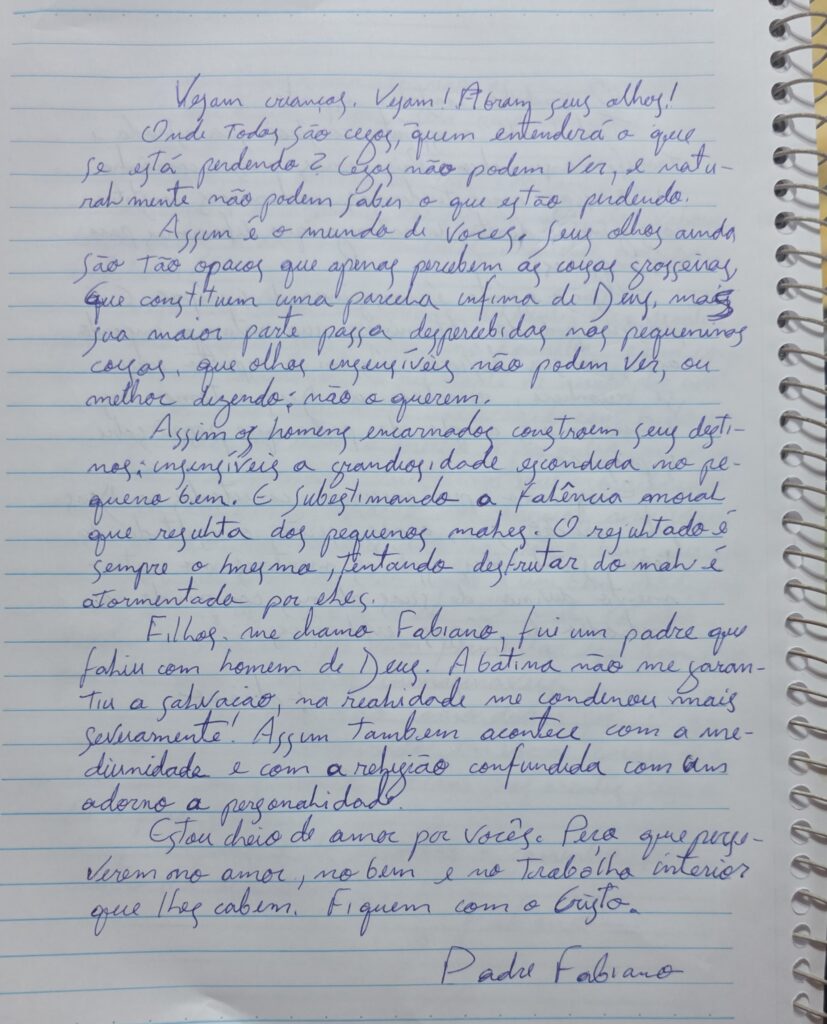 Vejam crianças. Vejam! Abram seus olhos!
Onde todos são cegos, quem entenderá o que
se está perdendo? Cegos não podem ver, e natu-
ralmente não podem saber o que estão perdendo.
Assim é o mundo de vocês. Seus olhos ainda
são tão opacos que apenas percebem as coisas grosseiras,
que constituem uma parcela ínfima de Deus, mas
sua maior parte passa despercebidas nas pequeninas
coisas, que olhos insensíveis não podem ver, ou
melhor dizendo: não o querem.
Assim os homens encarnados constroem seus desti-
nos: insensíveis a grandiosidade escondida no pe-
queno bem. E subestimando a falência moral
que resulta dos pequenos males. O resultado é
sempre o mesmo, tentando desfrutar do mal é
atormentado por eles.
Filhos. me chamo Fabiano, fui um padre que
faliu com homem de Deus. A batina não me garan-
tiu a salvação, na realidade me condenou mais
severamente! Assim também acontece com a me-
diunidade e com a religião confundida com um
adorno a personalidade.
Estou cheio de amor por vocês. Peço que perse-
verem no amor, no bem e no trabalho interior
que lhes cabem. Fiquem com o Cristo.
Padre Fabiano